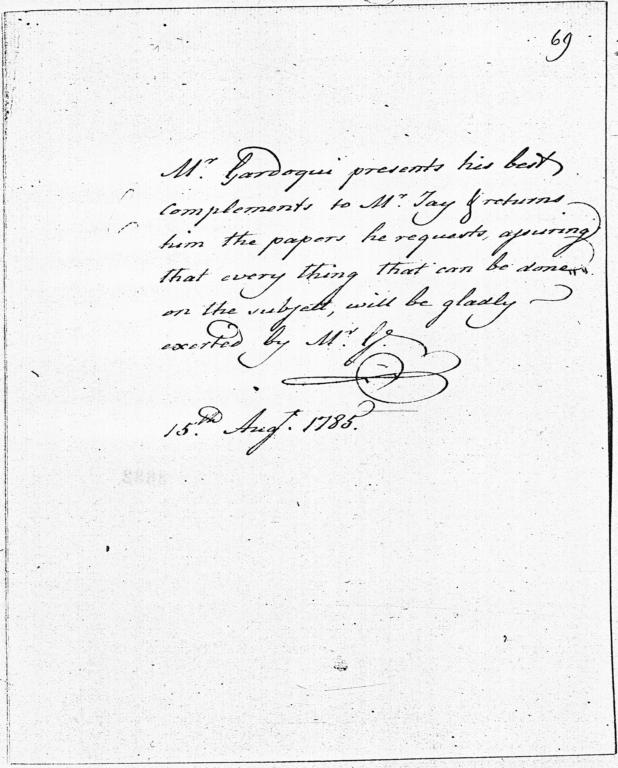 69
Mr. Gardoqui presents his best
complements to Mr. Jay & returns
him the papers he requests, assuring
that every thing that can be done
on the subject, will be gladly
exerted by Mr. G.
15th. Augt. 1785.